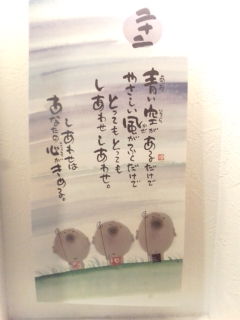 二十二
青い空があるだけで
やさしい風がふくだけで
とってもとっても
しあわせしあわせ。
しあわせは
あなたの心がきめる。